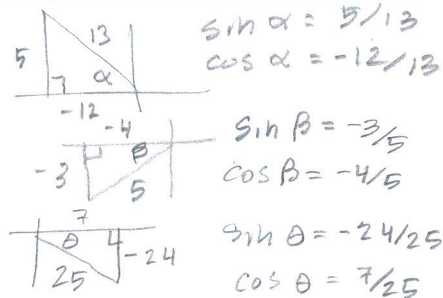 5
13
α
-12
sin α = 5/13
cos α = -12/13
-4
-3
β
5
sin β = -3/5
cos β = -4/5
7
θ
-24
25
sin θ = -24/25
cos θ = 7/25